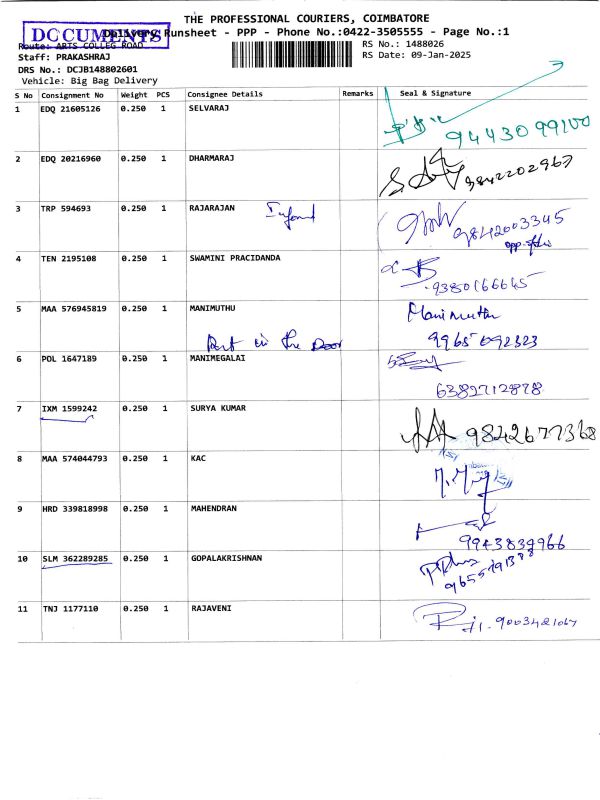 THE PROFESSIONAL COURIERS, COIMBATORE
DOCUMENTS
Delivery Runsheet - PPP - Phone No.:0422-3505555 - Page No.:1
Route: ARTS COLLEG ROAD
RS No.: 1488026
Staff: PRAKASHRAJ
RS Date: 09-Jan-2025
DRS No.: DCJB148802601
Vehicle: Big Bag Delivery
S No Consignment No Weight PCS Consignee Details Remarks Seal & Signature
1 EDQ 21605126 0.250 1 SELVARAJ
9443099100
2 EDQ 20216960 0.250 1 DHARMARAJ
9842202967
3 TRP 594693 0.250 1 RAJARAJAN
9842003345
4 TEN 2195108 0.250 1 SWAMINI PRACIDANDA
9380166645
5 MAA 576945819 0.250 1 MANIMUTHU Manimuthu
in the Door 9965092323
6 POL 1647189 0.250 1 MANIMEGALAI
6382712878
7 IXM 1599242 0.250 1 SURYA KUMAR
9842677368
8 MAA 574044793 0.250 1 KAC
9 HRD 339818998 0.250 1 MAHENDRAN
9943839966
10 SLM 362289285 0.250 1 GOPALAKRISHNAN
11 TNJ 1177110 0.250 1 RAJAVENI
9003421067